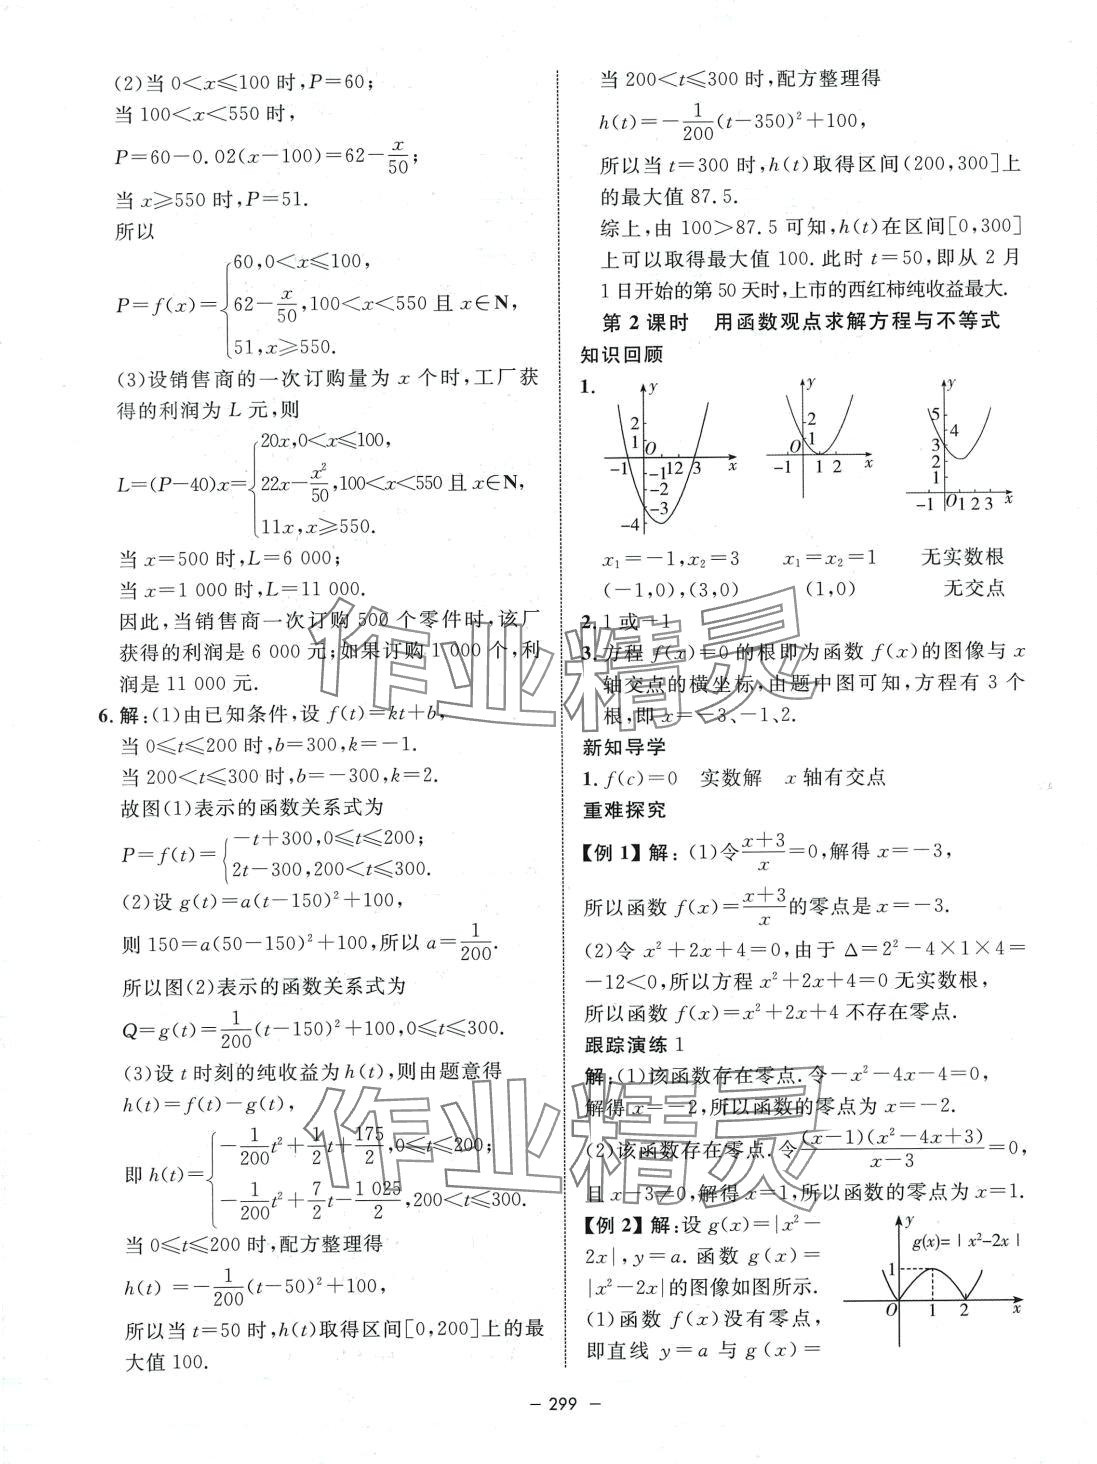 (2)当 0<x⩽100 时,P=60;
当 100<x<550 时,
P=60-0.02(x-100)=62-x/50;
当 x⩾550 时,P=51.
所以
P=f(x)={60,0<x⩽100,
62-x/50,100<x<550 且 x∈N,
51,x⩾550.
(3)设销售商的一次订购量为 x 个时,工厂获
得的利润为 L 元,则
L=(P-40)x={20x,0<x⩽100,
22x-x²/50,100<x<550 且 x∈N,
11x,x⩾550.
当 x=500 时,L=6 000;
当 x=1 000 时,L=11 000.
因此,当销售商一次订购 500 个零件时,该厂
获得的利润是 6 000 元;如果订购 1 000 个,利
润是 11 000 元.
6. 解:(1)由已知条件,设 f(t)=kt+b,
当 0⩽t⩽200 时,b=300,k=-1.
当 200<t⩽300 时,b=-300,k=2.
故图(1)表示的函数关系式为
P=f(t)={-t+300,0⩽t⩽200;
2t-300,200<t⩽300.
(2)设 g(t)=a(t-150)²+100,
则 150=a(50-150)²+100,所以 a=1/200.
所以图(2)表示的函数关系式为
Q=g(t)=1/200(t-150)²+100,0⩽t⩽300.
(3)设 t 时刻的纯收益为 h(t),则由题意得
h(t)=f(t)-g(t),
即 h(t)={-1/200t²+1/2t+175/2,0⩽t⩽200;
-1/200t²+7/2t-1 025/2,200<t⩽300.
当 0⩽t⩽200 时,配方整理得
h(t) =-1/200(t-50)²+100,
所以当 t=50 时,h(t)取得区间[0,200]上的最
大值 100.
当 200<t⩽300 时,配方整理得
h(t)=-1/200(t-350)²+100,
所以当 t=300 时,h(t)取得区间(200,300]上
的最大值 87.5.
综上,由 100>87.5 可知,h(t)在区间[0,300]
上可以取得最大值 100. 此时 t=50,即从 2 月
1 日开始的第 50 天时,上市的西红柿纯收益最大.
第 2 课时 用函数观点求解方程与不等式
知识回顾
1.
y 2 1 O -1 1 2 3 x -1 -2 -3 -4
y 2 1 O -1 1 2 x
y 5 4 3 2 1 -1 O 1 2 3 x
x₁=-1,x₂=3 x₁=x₂=1 无实数根
(-1,0),(3,0) (1,0) 无交点
2. 1 或 -1
3. 方程 f(x)=0 的根即为函数 f(x)的图像与 x
轴交点的横坐标,由题中图可知,方程有 3 个
根,即 x=-3、-1、2.
新知导学
1. f(c)=0 实数解 x 轴有交点
重难探究
【例 1】解:(1)令(x+3)/x=0,解得 x=-3,
所以函数 f(x)=(x+3)/x的零点是 x=-3.
(2)令 x²+2x+4=0,由于 Δ=2²-4×1×4=
-12<0,所以方程 x²+2x+4=0 无实数根,
所以函数 f(x)=x²+2x+4 不存在零点.
跟踪演练 1
解:(1)该函数存在零点.令-x²-4x-4=0,
解得 x=-2,所以函数的零点为 x=-2.
(2)该函数存在零点.令(x-1)(x²-4x+3)/(x-3)=0,
且 x-3≠0,解得 x=1,所以函数的零点为 x=1.
【例 2】解:设 g(x)=|x²-
2x|,y=a. 函数 g(x)=
|x²-2x|的图像如图所示.
(1)函数 f(x)没有零点,
即直线 y=a 与 g(x)=
y g(x)=|x²-2x| 1 O 1 2 x
- 299 -
作业精灵
作业精灵